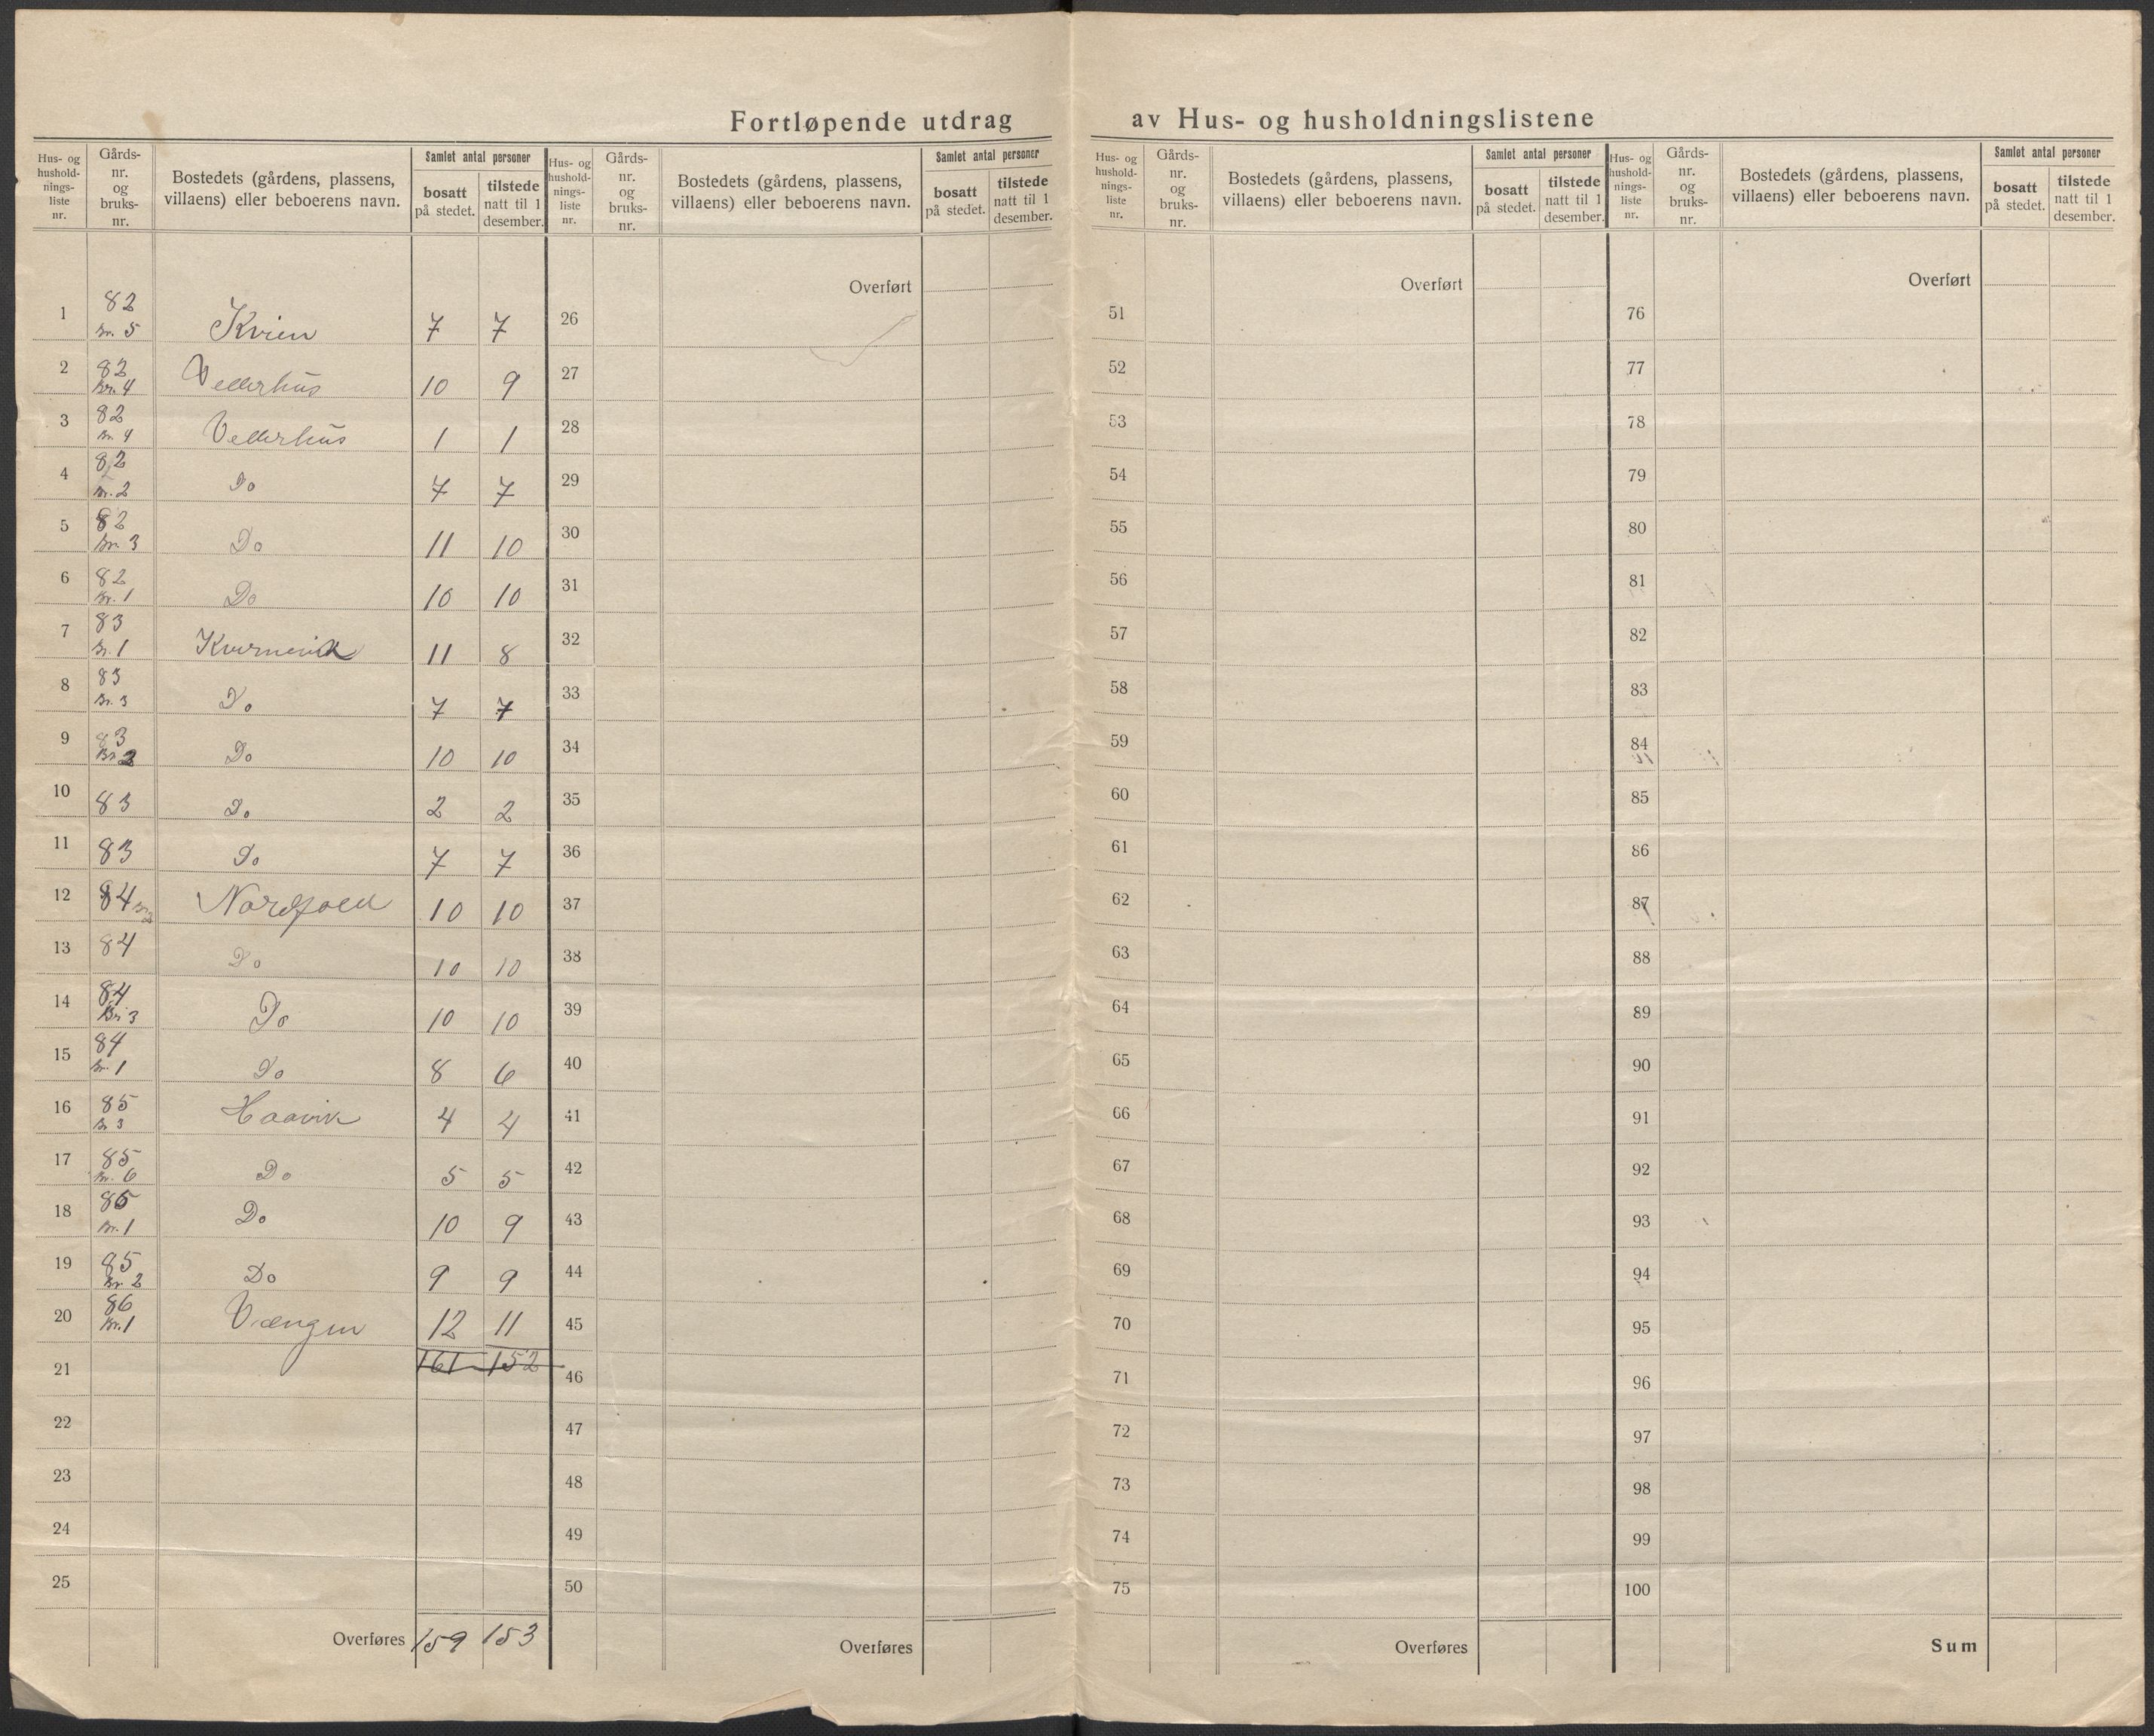 Fortløpende utdrag av Hus- og husholdningslistene
Hus- og hushold- nings- liste nr. Gårds- nr. og bruks- nr. Bostedets (gårdens, plassens, villaens) eller beboerens navn. Samlet antal personer bosatt på stedet. tilstede natt til 1 desember.
1 82 Br. 5 Kvien 7 7
2 82 Br. 4 Vederhus 10 9
3 82 Br. 4 Vederhus 1 1
4 82 Br. 2 Do 7 7
5 82 Br. 3 Do 11 10
6 82 Br. 1 Do 10 10
7 83 Br. 1 Kvernevik 11 8
8 83 Br. 3 Do 7 7
9 83 Br 2 Do 10 10
10 83 Do 2 2
11 83 Do 7 7
12 84 Nordfold 10 10
13 84 Do 10 10
14 84 Br 3 Do 10 10
15 84 Br. 1 Do 8 6
16 85 Br 3 Haavik 4 4
17 85 Br. 6 Do 5 5
18 85 Br. 1 Do 10 9
19 85 Br. 2 Do 9 9
20 86 Br. 1 Vængen 12 11
21 161 152
22
23
24
25
Overføres 159 153
Hus- og hushold- nings- liste nr. Gårds- nr. og bruks- nr. Bostedets (gårdens, plassens, villaens) eller beboerens navn. Samlet antal personer bosatt på stedet. tilstede natt til 1 desember.
Overført
26
27
28
29
30
31
32
33
34
35
36
37
38
39
40
41
42
43
44
45
46
47
48
49
50
Overføres
Hus- og hushold- nings- liste nr. Gårds- nr. og bruks- nr. Bostedets (gårdens, plassens, villaens) eller beboerens navn. Samlet antal personer bosatt på stedet. tilstede natt til 1 desember.
Overført
51
52
53
54
55
56
57
58
59
60
61
62
63
64
65
66
67
68
69
70
71
72
73
74
75
Overføres
Hus- og hushold- nings- liste nr. Gårds- nr. og bruks- nr. Bostedets (gårdens, plassens, villaens) eller beboerens navn. Samlet antal personer bosatt på stedet. tilstede natt til 1 desember.
Overført
76
77
78
79
80
81
82
83
84
85
86
87
88
89
90
91
92
93
94
95
96
97
98
99
100
Sum